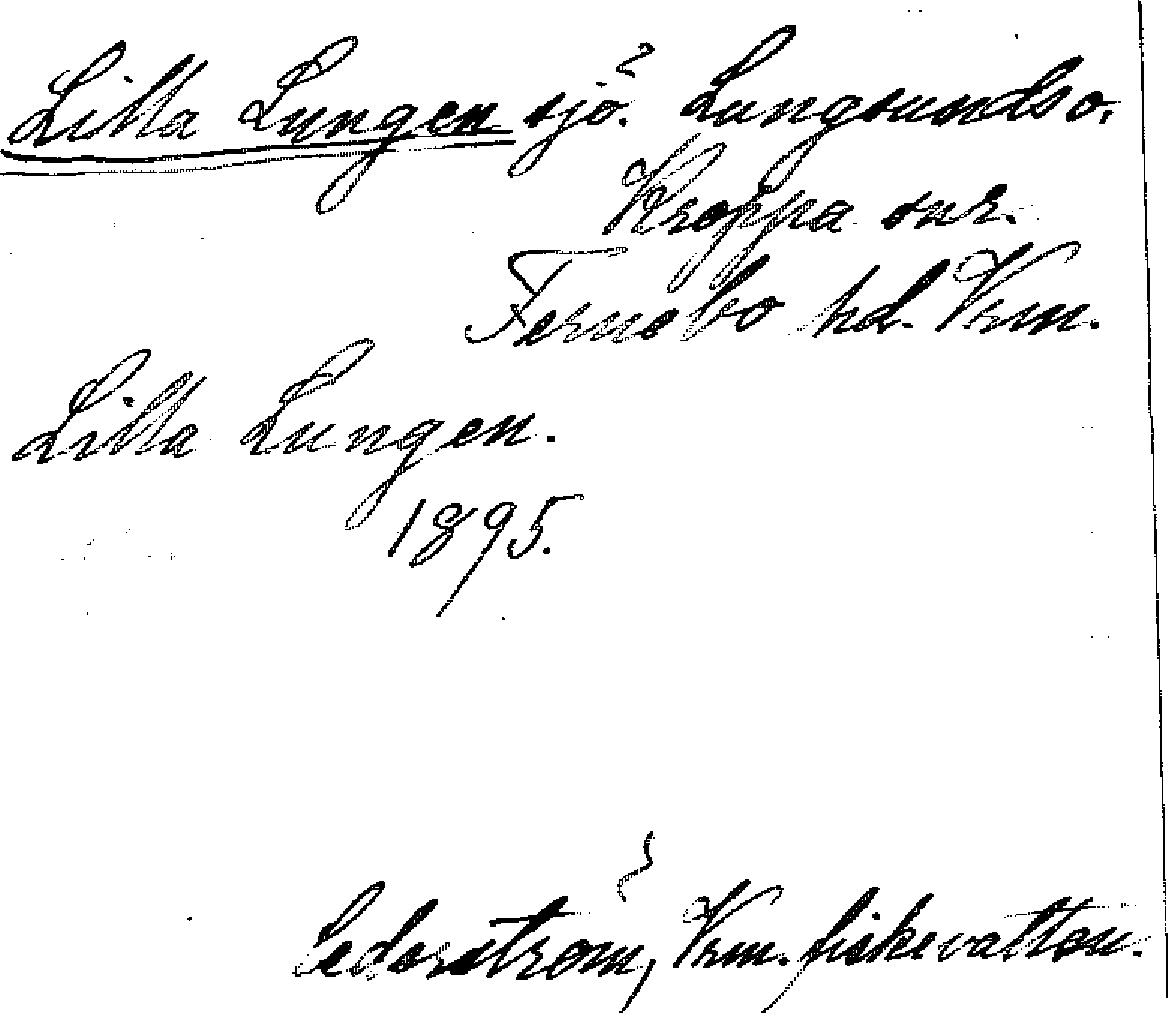 Lilla Lungen sjö. Lungsunds o.
Kroppa snr.
Fernebo hd. Vrm.
Lilla Lungen.
1895.
Cederström, Vrm. fiskevatten.